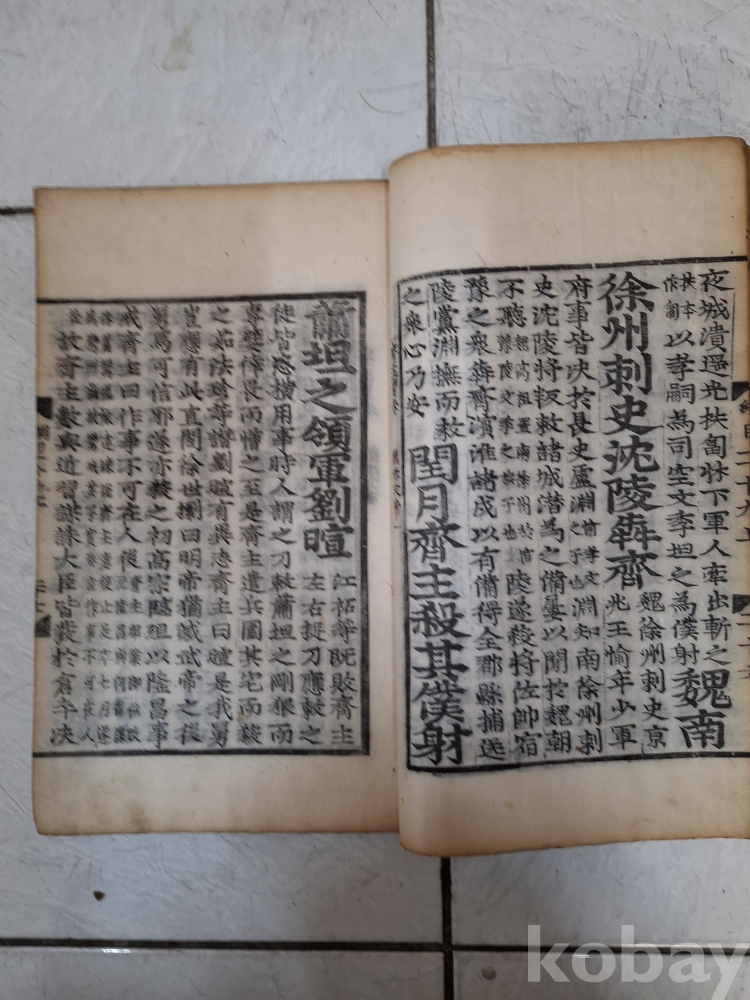 夜城潰遥光扶匐牀下軍人牽出斬之
扶本作匍 以孝嗣為司空文季坦之為僕射 魏南
徐州刺史沈陵犇齊 魏徐州刺史京
兆王愉年少軍
府事皆决於長史盧淵 淵知南徐州刺
史沈陵將叛敕諸城潛為之備屢以聞於魏朝
不聽 陵遂殺將佐帥宿
豫之衆犇齊濱淮諸戍以有備得全郡縣捕送
陵黨淵撫而赦
之衆心乃安 閏月齊主殺其僕射
蕭坦之領軍劉暄 江祏等既敗齊主
左右捉刀應敕之
徒皆恣横用事時人謂之刀敕蕭坦之剛狠而
專嬖倖畏而憎之至是齊主遣兵圍其宅而殺
之茹法珍等譖劉暄有異志齊主曰暄是我舅
豈應有此直閤徐世㯹曰明帝猶滅武帝之後
舅焉可信邪遂亦殺之初高宗臨殂以隆昌事
戒齊主曰作事不可在人後
故齊主數與近習謀誅大臣皆發於倉卒决
kobay